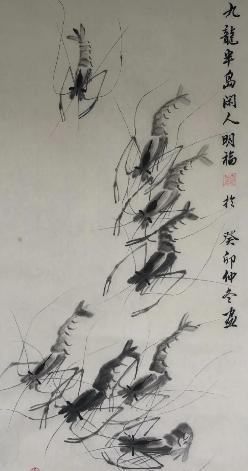 九龍半島閑人明福於癸卯仲冬畫